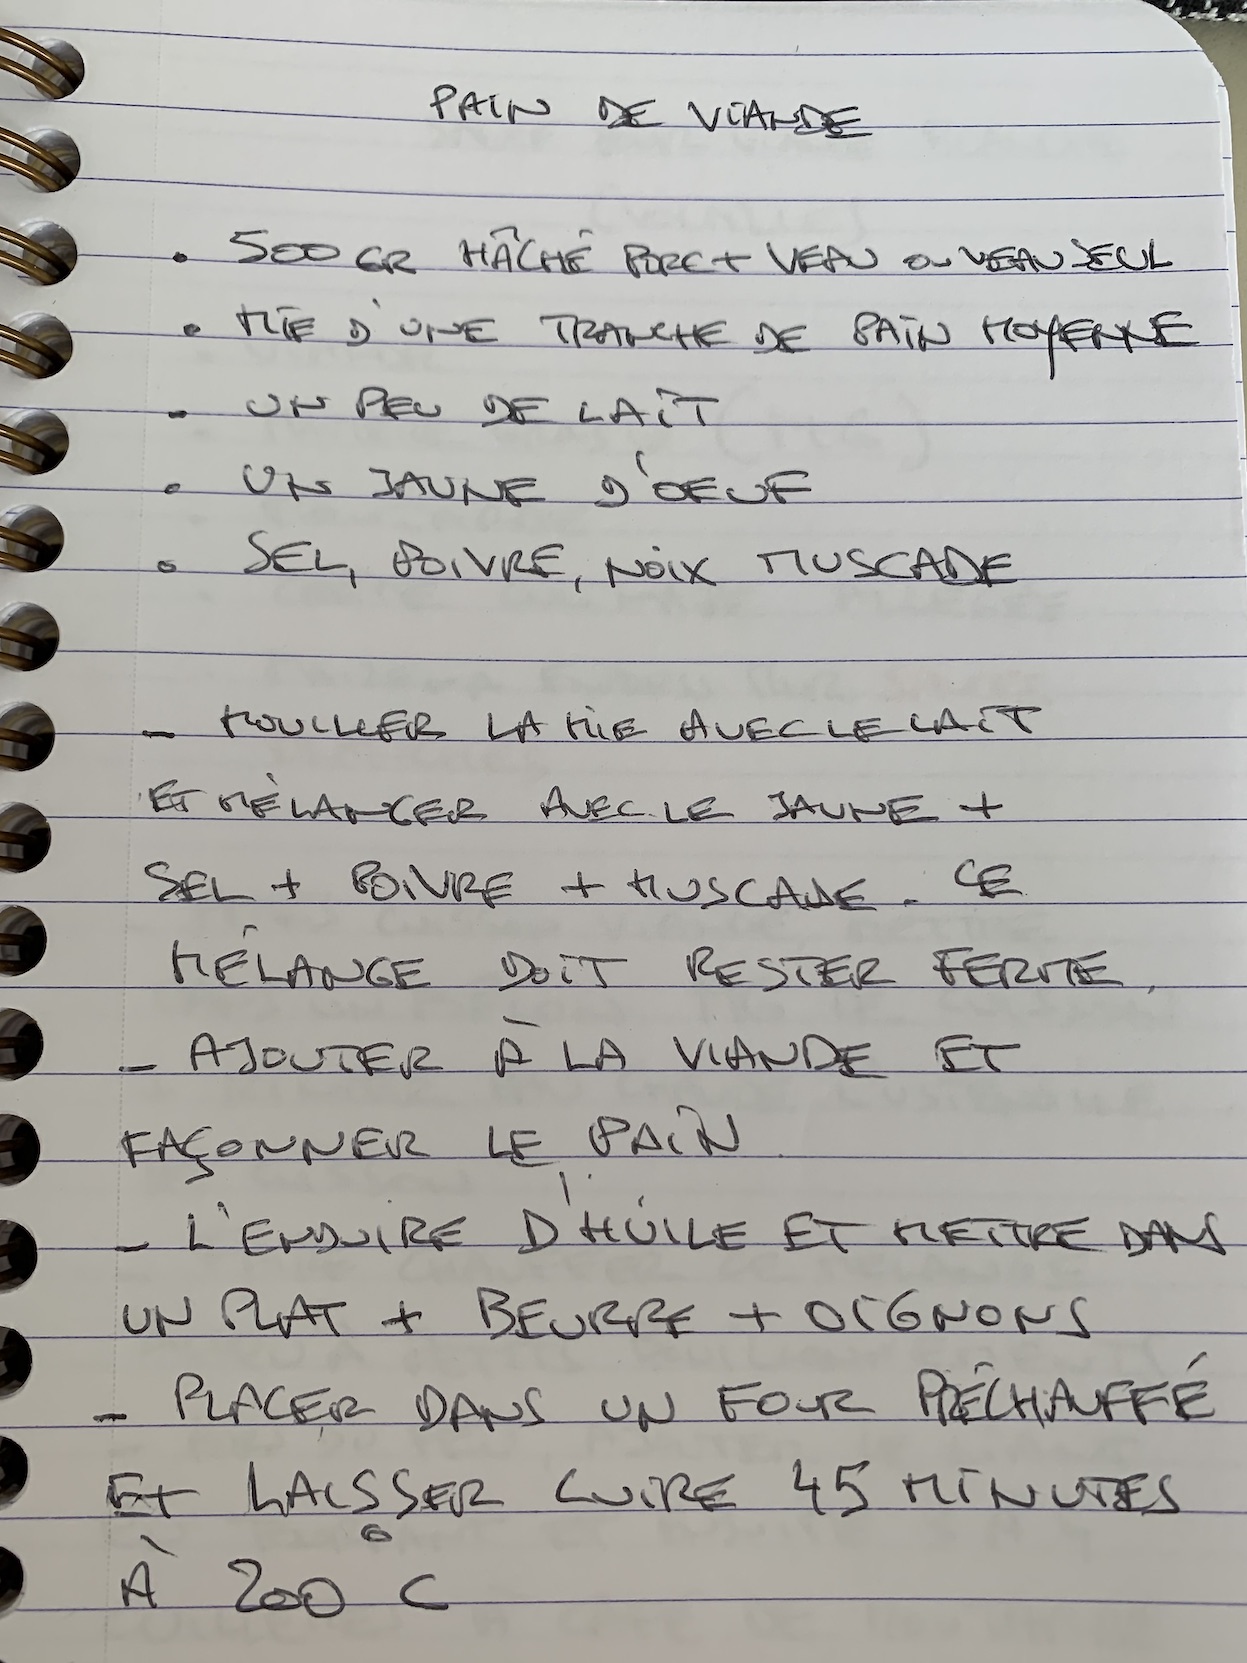 PAIN DE VIANDE
• 500 GR HÂCHÉ PORC + VEAU OU VEAU SEUL
• MIE D'UNE TRANCHE DE PAIN MOYENNE
- UN PEU DE LAIT
• UN JAUNE D'OEUF
• SEL, POIVRE, NOIX MUSCADE
- MOUILLER LA MIE AVEC LE LAIT
ET MÉLANGER AVEC LE JAUNE +
SEL + POIVRE + MUSCADE. CE
MÉLANGE DOIT RESTER FERME.
- AJOUTER À LA VIANDE ET
FAÇONNER LE PAIN.
- L'ENDUIRE D'HUILE ET METTRE DANS
UN PLAT + BEURRE + OIGNONS
- PLACER DANS UN FOUR PRÉCHAUFFÉ
ET LAISSER CUIRE 45 MINUTES
À 200°C